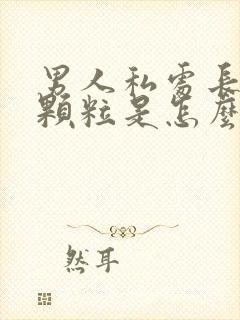 男人私處長
顆粒是怎麼
然耳